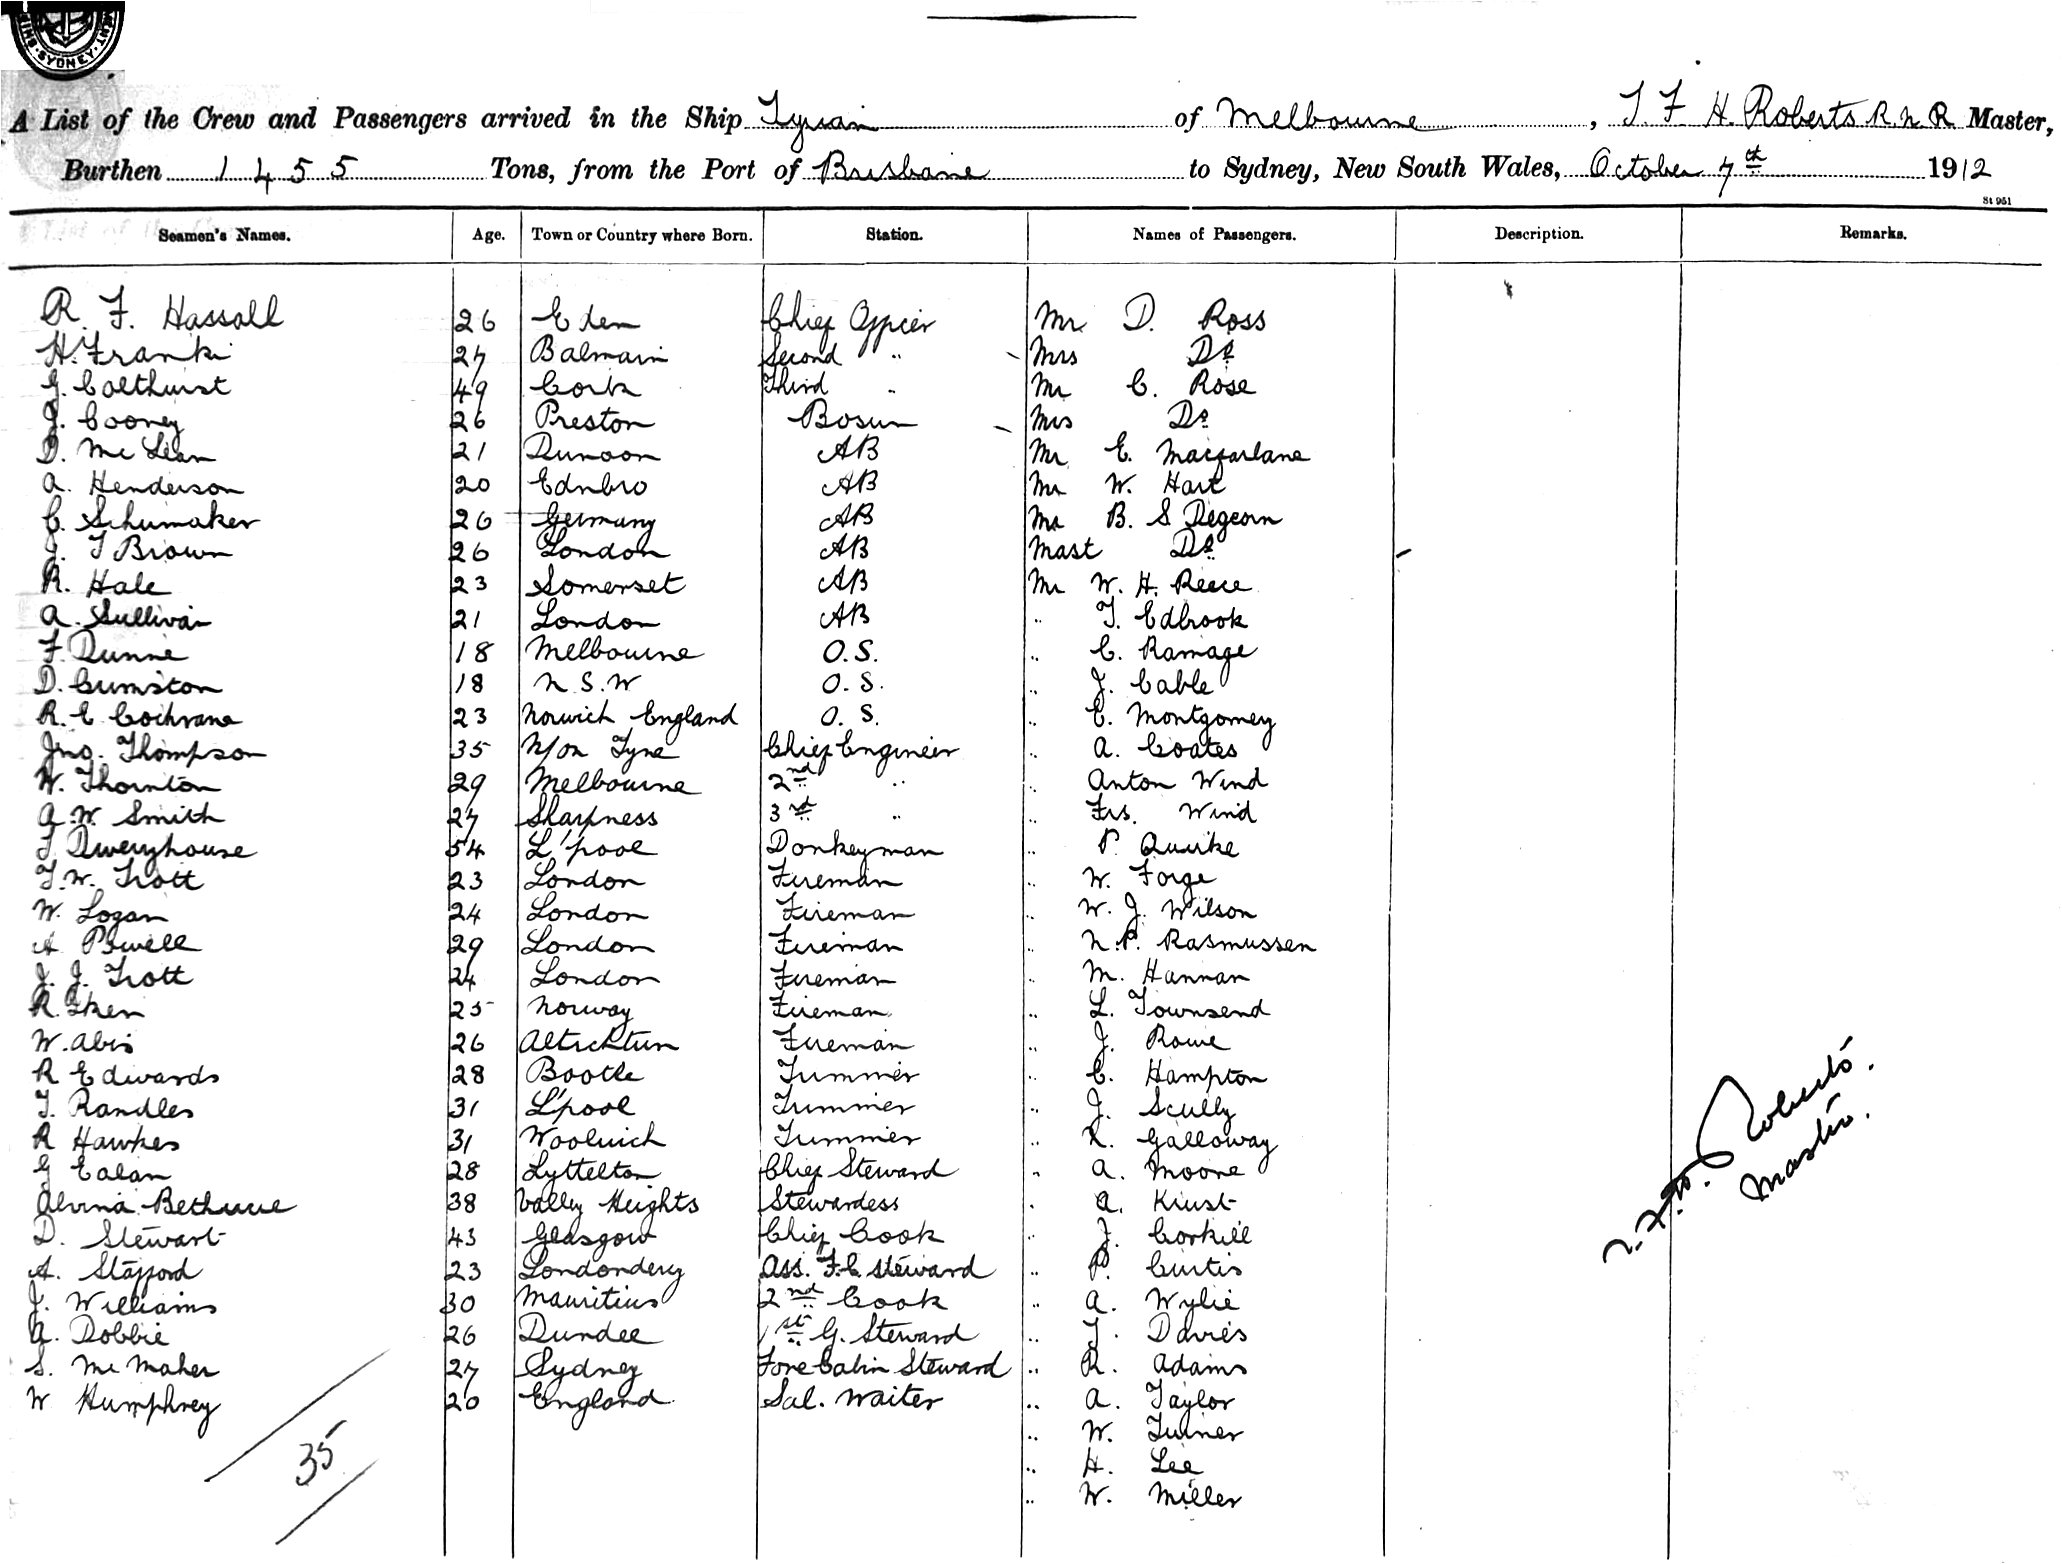 SYDNEY
A List of the Crew and Passengers arrived in the Ship Tyrian of Melbourne, T F H. Roberts R.N.R Master,
Burthen 1455 Tons, from the Port of Brisbane to Sydney, New South Wales, October 7th 1912
St 951
Seamen's Names. Age. Town or Country where Born. Station. Names of Passengers. Description. Remarks.
R. F. Hassall 26 Eden Chief Officer Mr D. Ross
H. Franki 27 Balmain Second " Mrs Do
G. Colthurst 49 Cork Third " Mr C. Rose
J. Cooney 26 Preston Bosun Mrs Do
D. McLean 21 Dunoon AB Mr E. Macfarlane
A. Henderson 20 Ednbro AB Mr W. Hart
C. Schumaker 26 Germany AB Mr B. S Degeorn
J. T Brown 26 London AB Mast Do
R. Hale 23 Somerset AB Mr W. H. Reece
A. Sullivan 21 London AB " T. Edbrook
F. Dunne 18 Melbourne O.S. " C. Ramage
D. Cumston 18 N.S.W O.S. " J. Cable
R. E Cochrane 23 Norwich England O.S. " E. Montgomey
Jno. Thompson 35 N/on Tyne Chief Engineer " A. Coates
W. Thornton 29 Melbourne 2nd " " Anton Wind
A. W. Smith 27 Sharpness 3rd " " Frs. Wind
T Dweryhouse 54 L'pool Donkeyman " P. Quirke
T. W. Trott 23 London Fireman " W. Forge
W. Logan 24 London Fireman " W. J. Wilson
A Powell 29 London Fireman " N. P. Rasmussen
J. J. Trott 24 London Fireman " M. Hannan
R. 25 Norway Fireman " L. Townsend
W. Abis 26 Fireman " J. Rowe
R Edwards 28 Bootle Trimmer " C. Hampton
T. Randles 31 L'pool Trimmer " J. Scully
R Hawkes 31 Woolwich Trimmer " R. Galloway
G Ealan 28 Lyttelton Chief Steward " A. Moore
Alvina Bethune 38 Valley Heights Stewardess " A.
D. Stewart 43 Glasgow Chief Cook " J. Corkill
A. Stafford 23 Londondery Ass. F.C. Steward " P. Curtis
J. Williams 30 Mauritius 2nd Cook " A. Wylie
A. Dobbie 26 Dundee 1st G. Steward " T. Davies
S. McMaher 27 Sydney Fore Cabin Steward " R. Adams
W Humphrey 20 England Sal. Waiter " A. Taylor
" W. Turner
" H. Lee
" W. Miller
35
T. F. H. Roberts.
Master.